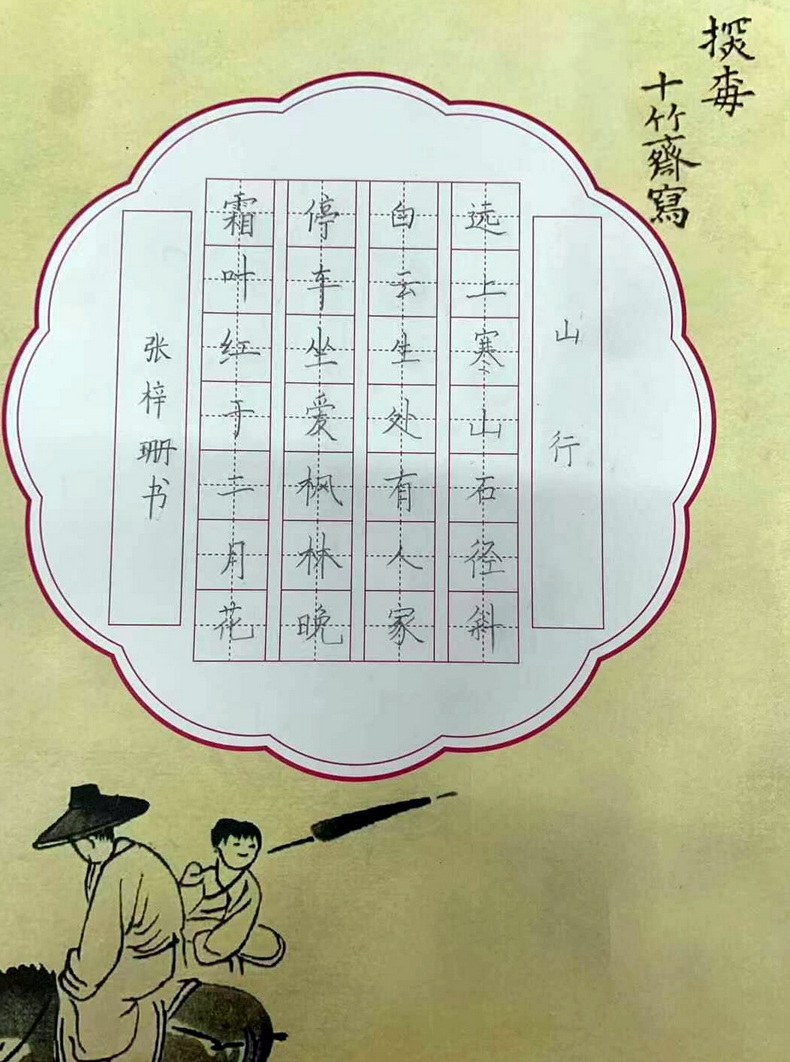 探梅
十竹齋寫
山行
远上寒山石径斜
白云生处有人家
停车坐爱枫林晚
霜叶红于二月花
张梓珊书